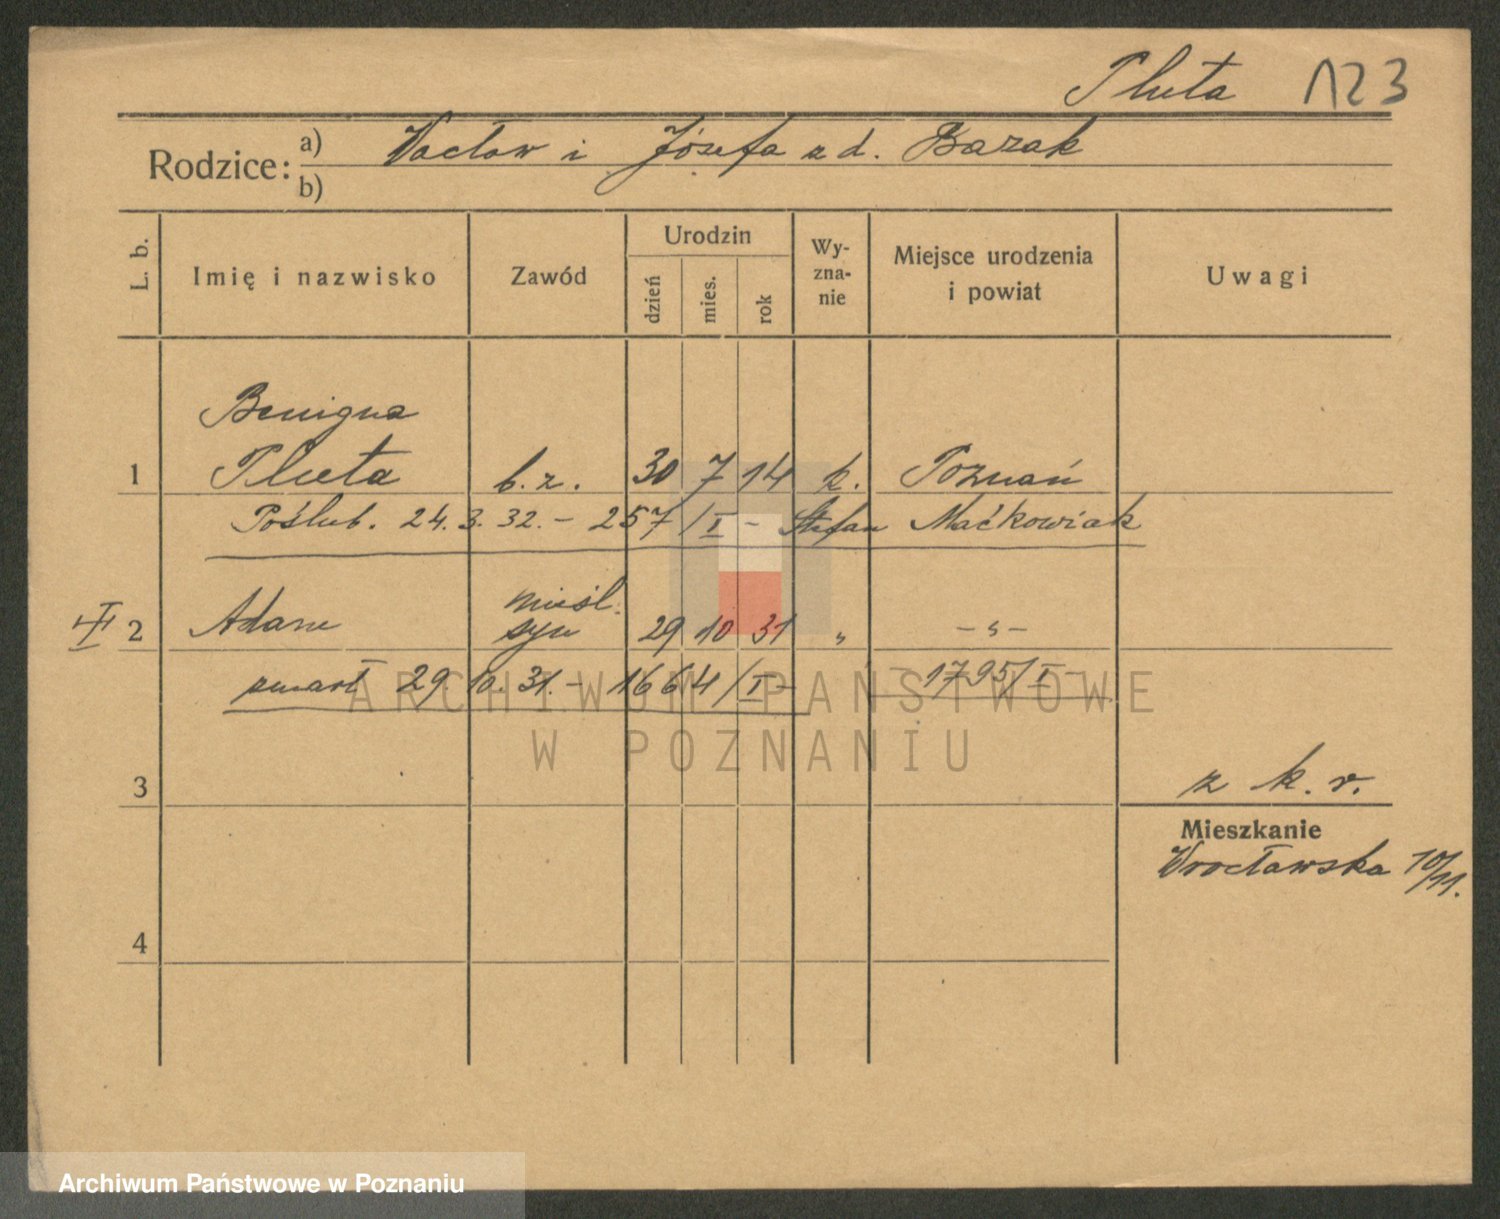 Pluta 123
Rodzice: a) Wacław i Józefa z d. Bazak
b)
L. b. Imię i nazwisko Zawód Urodzin dzień mies. rok Wy-zna-nie Miejsce urodzenia i powiat Uwagi
Benigna
1 Pluta b.z. 30 7 14 k. Poznań
Poślub. 24. 3. 32. – 257/I – Stefan Maćkowiak
nieśl.
2 Adam syn 29 10 31 " – " –
zmarł 29. 10. 31. – 1664/I – 1795/I –
ARCHIWUM PAŃSTWOWE
W POZNANIU
3 z k. r.
Mieszkanie
Wrocławska 10/11.
4
Archiwum Państwowe w Poznaniu